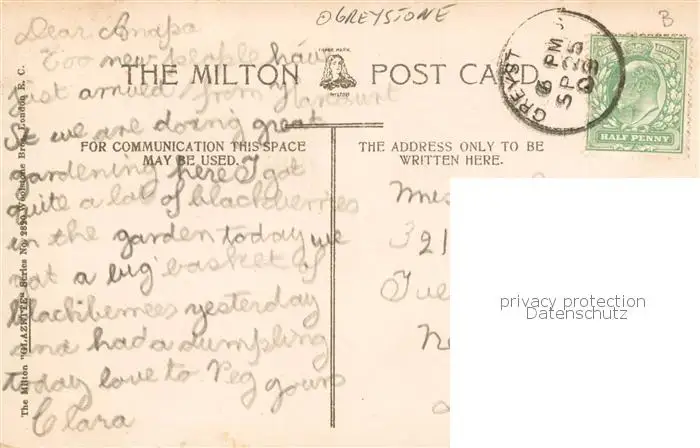 OGREYSTONE
B
Dear Anapa
Too new people have
TRADE MARK
MILTON
THE MILTON POST CARD
just arrived from Harcourt
St we are doing great
FOR COMMUNICATION THIS SPACE
MAY BE USED.
THE ADDRESS ONLY TO BE
WRITTEN HERE.
gardening here I got
quite a lot of blackberries
in the garden today we
got a bug basket of
blackberrees yesterday
and had a dumpling
today love to Peg yours
Clara
GREYST
6 PM
SP 25
HALF PENNY
Mrs
321
Tue
The Milton "GLAZETTE" Series No. Woolstone Bros. London E. C.
privacy protection
Datenschutz